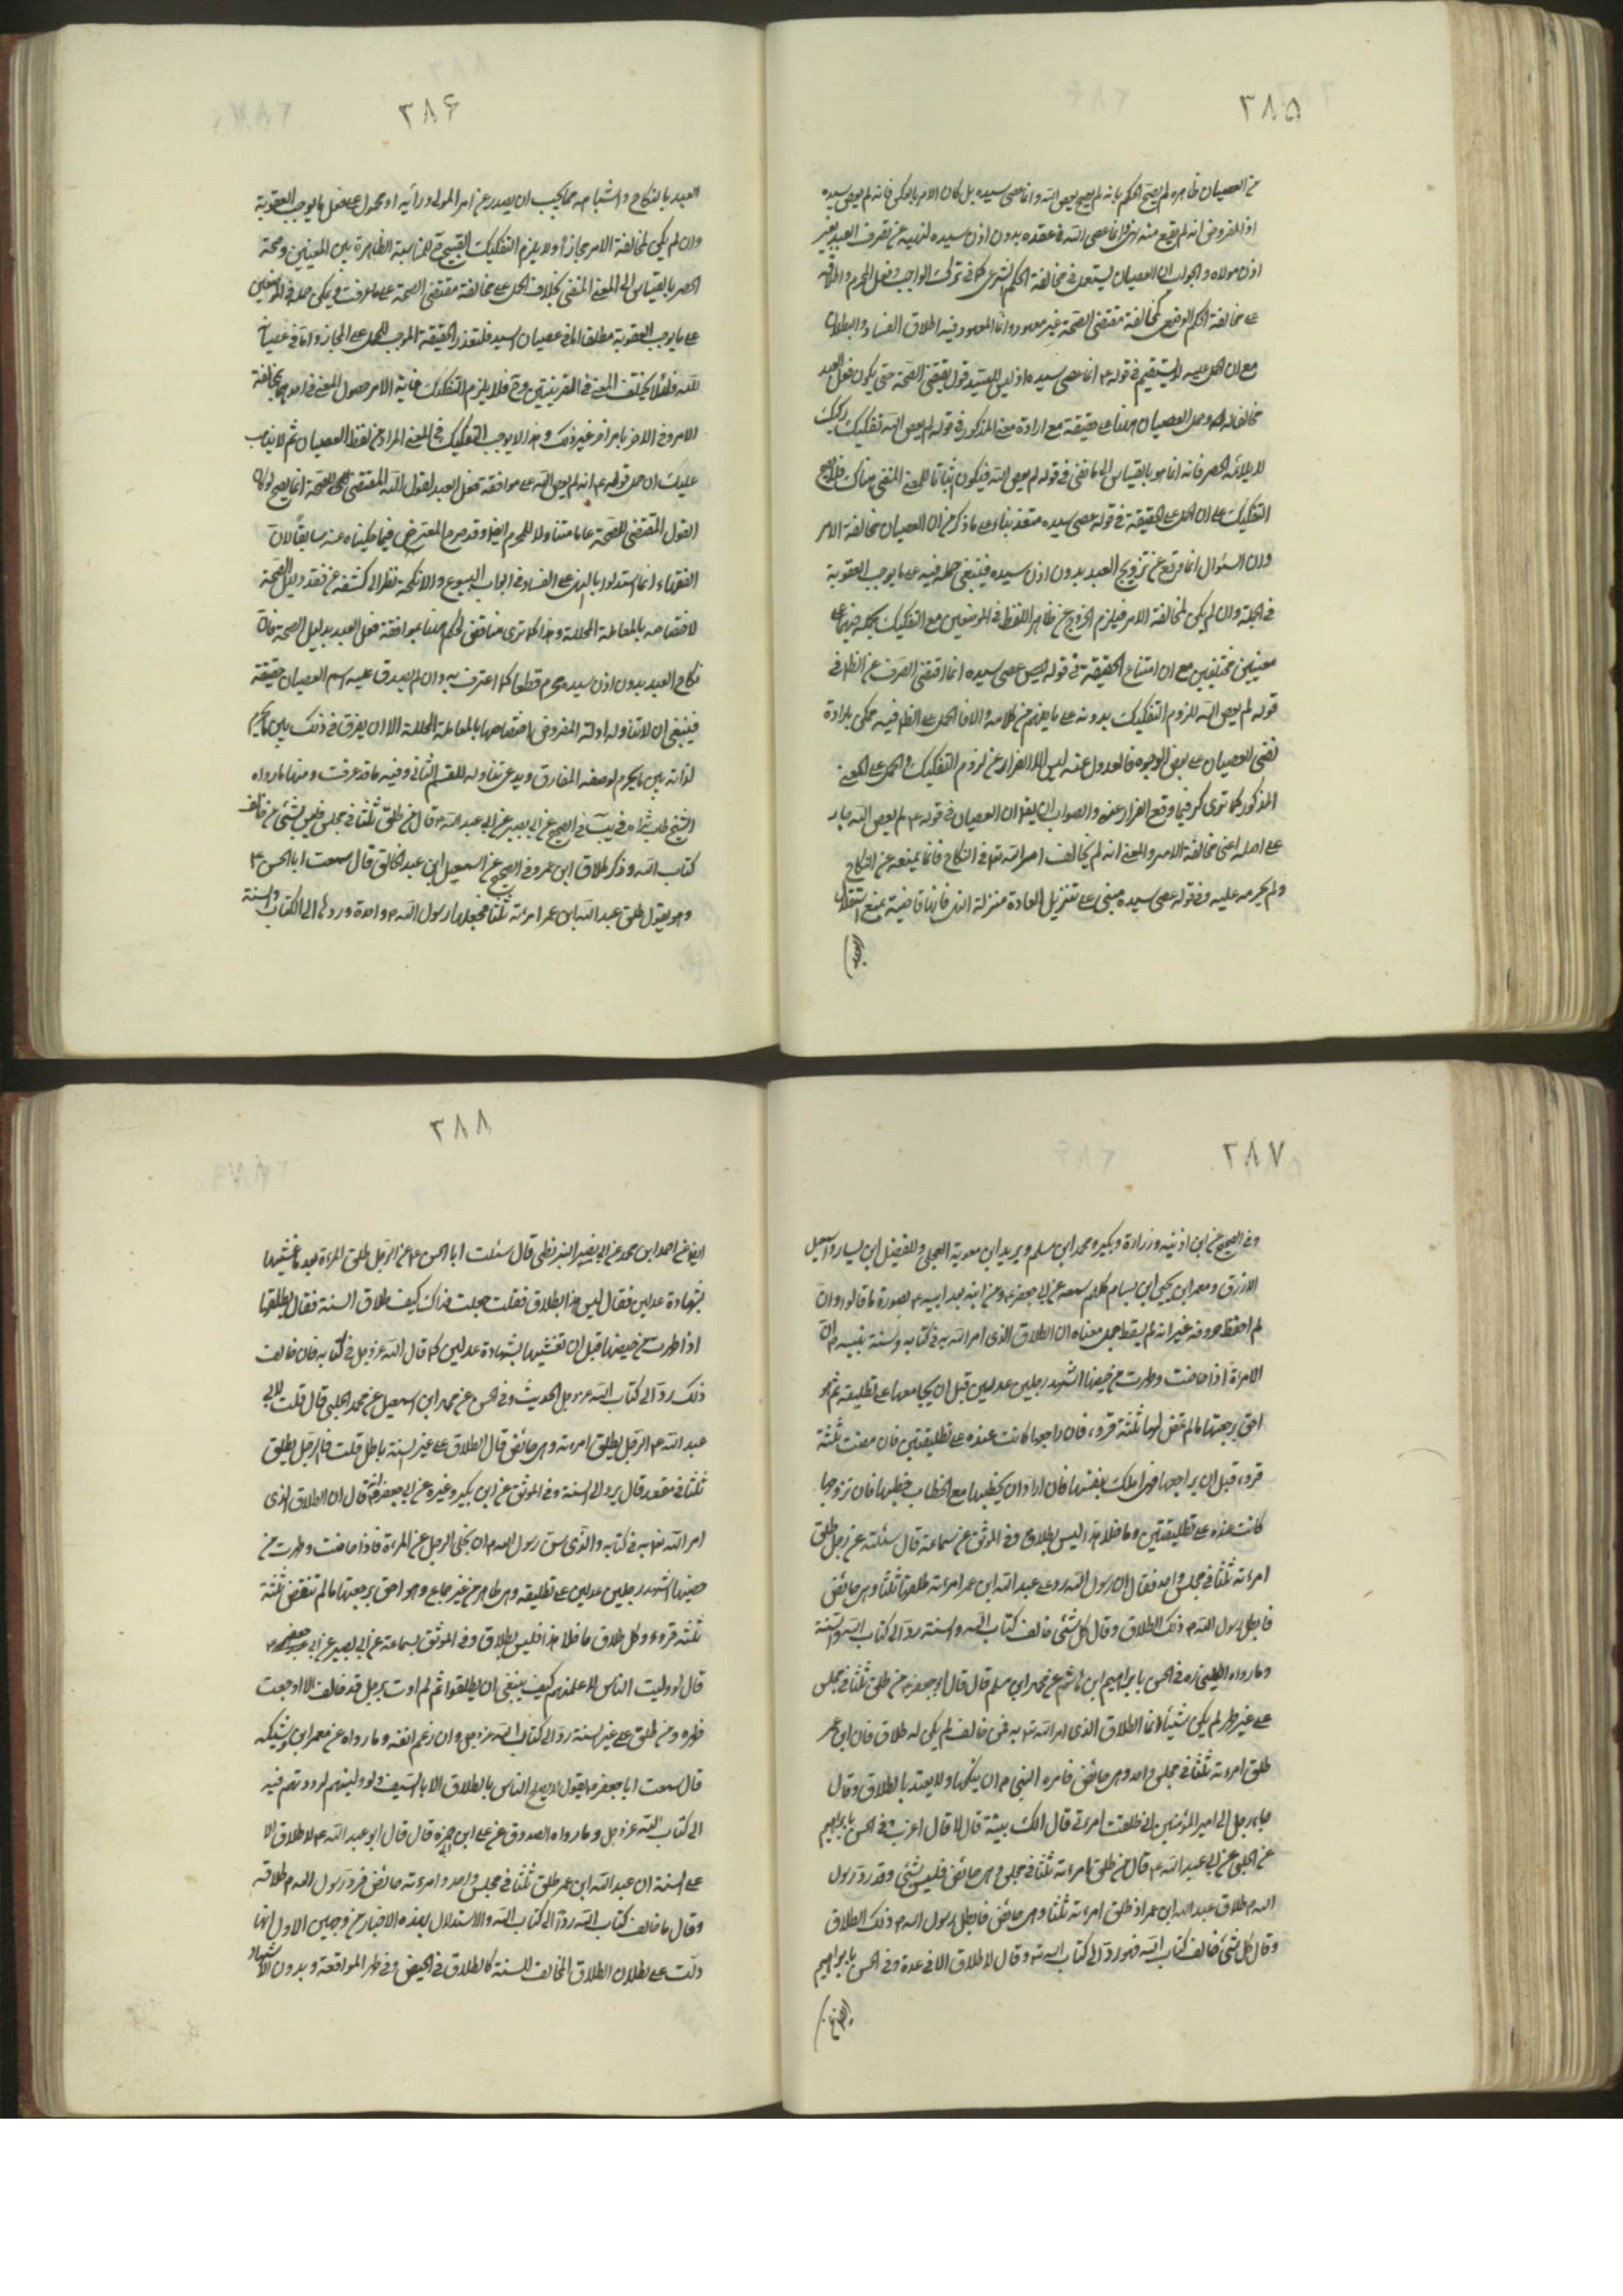 ٣٨۵
من العصيان ظاهره لم يصح الحكم بانه لم يعص الله وانما عصى سيده بل كان الامر بالعكس فانه لم يعص سيده
اذ المفروض انه لم يقع منه نهى وانما عصى الله فى عقده بدون اذن سيده لنهيه عن تصرف العبد بغير
اذن مولاه والجواب ان العصيان يستعمل فى مخالفة الحكم الشرعى كما فى ترك الواجب وفعل المحرم واطلاقه
على مخالفة الحكم الوضعى كمخالفة مقتضى الصحة غير معهود وانما المعهود فيه اطلاق الفساد والبطلان
مع ان الحمل عليه لا يستقيم فى قوله ع انما عصى سيده اذ ليس للسيد قول يقتضى الصحة حتى يكون فعل العبد
مخالفا له وحمل العصيان هنا على حقيقته مع ارادة معنى المذكور فى قوله لم يعص الله تفكيك ركيك
لا يلائمه الحصر فانه انما هو بالقياس الى ما نفى فى قوله لم يعص الله فيكون اثباتا للمعنى المنفى هناك فلا يصح
التفكيك على ان الحمل على الحقيقة فى قوله عصى سيده متعذر بناء على ما ذكر من ان العصيان مخالفة الامر
وان السئوال انما وقع عن تزويج العبد بدون اذن سيده فينبغى حمله فيه على ما يوجب العقوبة
فى الجملة وان لم يكن لمخالفة الامر فيلزم الخروج عن ظاهر اللفظ فى الموضعين مع التفكيك بحمله فيهما على
معنيين مختلفين مع ان امتناع الحقيقة فى قوله عصى سيده انما اقتضى الصرف عن الظاهر فى
قوله لم يعص الله للزوم التفكيك بدونه على ما يفهم من كلامه والا فالحمل على الظاهر فيه ممكن بارادة
نفى العصيان على بعض الوجوه فالعدول عنه ليس الا للفرار عن لزوم التفكيك والحمل على المعنى
المذكور كما ترى كر فيما وقع الفرار عنه والصواب ان يقال ان العصيان فى قوله ع لم يعص الله باق
على اصله اعنى مخالفة الامر والمعنى انه لم يخالف امر الله تعا فى النكاح فانه لم يمنعه عن النكاح
ولم يحرمه عليه وفى قوله عصى سيده مبنى على تنزيل العادة منزلة النهى فانها قاضية بمنع استقلال
العبد
٣٨۶
العبد بالنكاح واشباهه مما يجب ان يصدر عن امر المولى ورأيه او محمول على فعل ما يوجب العقوبة
وان لم يكن لمخالفة الامر مجازا ولا يلزم التفكيك القبيح للمناسبة الظاهرة بين المعنيين وصحة
الحصر بالقياس الى المعنى المنفى بخلاف الحمل على مخالفة مقتضى الصحة على ما عرفت ويمكن حمله فى الموضعين
على ما يوجب العقوبة مطلقا اما فى عصيان السيد فلتعذر الحقيقة الموجب للحمل على المجاز واما فى عصيان
الله فلئلا يختلف المعنى فى القرينتين وح فلا يلزم التفكيك غاية الامر حصول المعنى فى احدهما بمخالفة
الامر وفى الاخر بامر اخر غير ذلك وهذا لا يوجب التفكيك فى المعنى المراد من لفظ العصيان ثم لا يذهب
عليك ان حمل قوله ع انه لم يعص الله على موافقة فعل العبد لقول الله المقتضى للصحة انما يصح لو كان
القول المقتضى للصحة عاما متناولا للمحرم ايضا وقد صرح المعترض فيما حكيناه عنه سابقا لان
الفقهاء انما استدلوا بالنهى على الفساد فى ابواب البيوع والانكحة نظرا الى كشفه عن فقد دليل الصحة
لاختصاصه بالمعاملة المحللة وهذا كما ترى مناقض لحكمه هنا بموافقة فعل العبد بدليل الصحة فان
نكاح العبد بدون اذن سيده محرم قطعا كما اعترف به وان لم يصدق عليه اسم العصيان حقيقة
فينبغى ان لا تتناوله ادلة المفروض اختصاصها بالمعاملة المحللة الا ان يفرق فى ذلك بين ما يحرم
لذاته وبين ما يحرم لوصفه المفارق ويدعى تناوله للقسم الثانى وفيه ما قد عرفت ومنها ما رواه
الشيخ طاب ثراه فى يب فى الصحيح عن ابى بصير عن ابى عبد الله ع قال من طلق ثلثا فى مجلس فليس بشئ من خالف
كتاب الله وذكر طلاق ابن عمر وفى الصحيح عن اسمعيل ابن عبد الخالق قال سمعت ابا الحسن ع
وهو يقول طلق عبد الله ابن عمر امرءته ثلثا فجعلها رسول الله ص واحدة وردها الى الكتاب والسنة
٣٨٧
وفى الصحيح عن ابن اذينة وزرارة وبكير ومحمد ابن مسلم وبريد ابن معوية العجلى والفضيل ابن يسار واسمعيل
الازرق ومعمر ابن يحيى ابن بسام كلهم سمعه عن ابى جعفر ع ومن ابنه بعد ابيه ع بصورة ما قالوا وان
لم احفظ حروفه غير انه لم يسقط جمل معناه ان الطلاق الذى امر الله به فى كتابه وسنة نبيه ص ان
الامرءة اذا حاضت وطهرت من حيضها اشهد رجلين عدلين قبل ان يجامعها على تطليقه ثم هو
احق برجعتها ما لم تمض لها ثلثة قروء فان راجعها كانت عنده على تطليقتين فان مضت ثلثة
قروء قبل ان يراجعها فهى املك بنفسها فان اراد ان يخطبها مع الخطاب خطبها فان تزوجها
كانت عنده على تطليقتين وما خلا هذا ليس بطلاق وفى الموثق عن سماعة قال سئلته عن رجل طلق
امرءته ثلثا فى مجلس واحد فقال ان رسول الله رد على عبد الله ابن عمر امرءته طلقها ثلثا وهى حائض
فابطل رسول الله ص ذلك الطلاق وقال كل شئ خالف كتاب الله والسنة رد الى كتاب الله والسنة
وما رواه الكلينى ره فى الحسن بابراهيم ابن هاشم عن محمد ابن مسلم قال قال ابو جعفر ع من طلق ثلثا فى مجلس
على غير طهر لم يكن شيئا انما الطلاق الذى امر الله تع به فمن خالف لم يكن له طلاق فان ابن عمر
طلق امرءته ثلثا فى مجلس واحد وهى حائض فامره النبى ص ان ينكحها ولا يعتد بالطلاق وقال
جاء رجل الى امير المؤمنين انى طلقت امرءتى قال الك بينة قال لا قال اعزب وفى الحسن بابراهيم
عن الحلبى عن ابى عبد الله ع قال من طلق امرءته ثلثا فى مجلس وهى حائض فليس بشئ وقد رد رسول
الله ص طلاق عبد الله ابن عمر اذ طلق امرءته ثلثا وهى حائض فابطل رسول الله ص ذلك الطلاق
وقال كل شئ خالف كتاب الله فهو رد الى كتاب الله تع وقال لا طلاق الا فى عدة وفى الحسن بابراهيم
٣٨٨
ايضا عن احمد ابن محمد عن ابى نصير البزنطى قال سئلت ابا الحسن ع عن الرجل طلق المرءة بعد ما غشيها
بشهادة عدلين فقال ليس هذا بطلاق فقلت جعلت فداك كيف طلاق السنة فقال يطلقها
اذا طهرت من حيضها قبل ان تغشيها بشهادة عدلين كما قال الله عز وجل فى كتابه فان خالف
ذلك رد الى كتاب الله عز وجل الحديث وفى الحسن عن محمد ابن اسمعيل عن محمد الحلبى قال قلت لابى
عبد الله ع الرجل يطلق امرءته وهى حائض قال الطلاق على غير السنة باطل قلت فالرجل يطلق
ثلثا فى مقعد قال يرد الى السنة وفى الموثق عن ابن بكير وغيره عن ابى جعفر قال ان الطلاق الذى
امر الله تع به فى كتابه والذى سن رسول الله ص ان يخلى الرجل عن المرءة فاذا حاضت وطهرت من
حيضها اشهد رجلين عدلين على تطليقه وهى طاهر من غير جماع وهو احق برجعتها ما لم تنقض ثلثة
ثلثة قروء وكل طلاق ما خلا هذا فليس بطلاق وفى الموثق بسماعة عن ابى بصير عن ابى جعفر ع
قال لو وليت الناس لاعلمتهم كيف ينبغى ان يطلقوا ثم لم اوت برجل قد خالف الا اوجعت
ظهره ومن طلق على غير السنة رد الى كتاب الله عز وجل وان رغم انفه وما رواه عن معمر ابن وشيكه
قال سمعت ابا جعفر ع يقول لا يصلح الناس بالطلاق الا بالسيف ولو وليتهم لرددتهم فيه
الى كتاب الله عز وجل وما رواه الصدوق عن على ابن ابى حمزه قال قال ابو عبد الله ع لا طلاق الا
على السنة ان عبد الله ابن عمر طلق ثلثا فى مجلس واحد وامرءته حائض فرد رسول الله ص طلاقه
وقال ما خالف كتاب الله رد الى كتاب الله والاستدلال بهذه الاخبار من وجهين الاول انها
دلت على بطلان الطلاق المخالف للسنة كالطلاق فى الحيض وفى طهر المواقعة وبدون الاشهاد